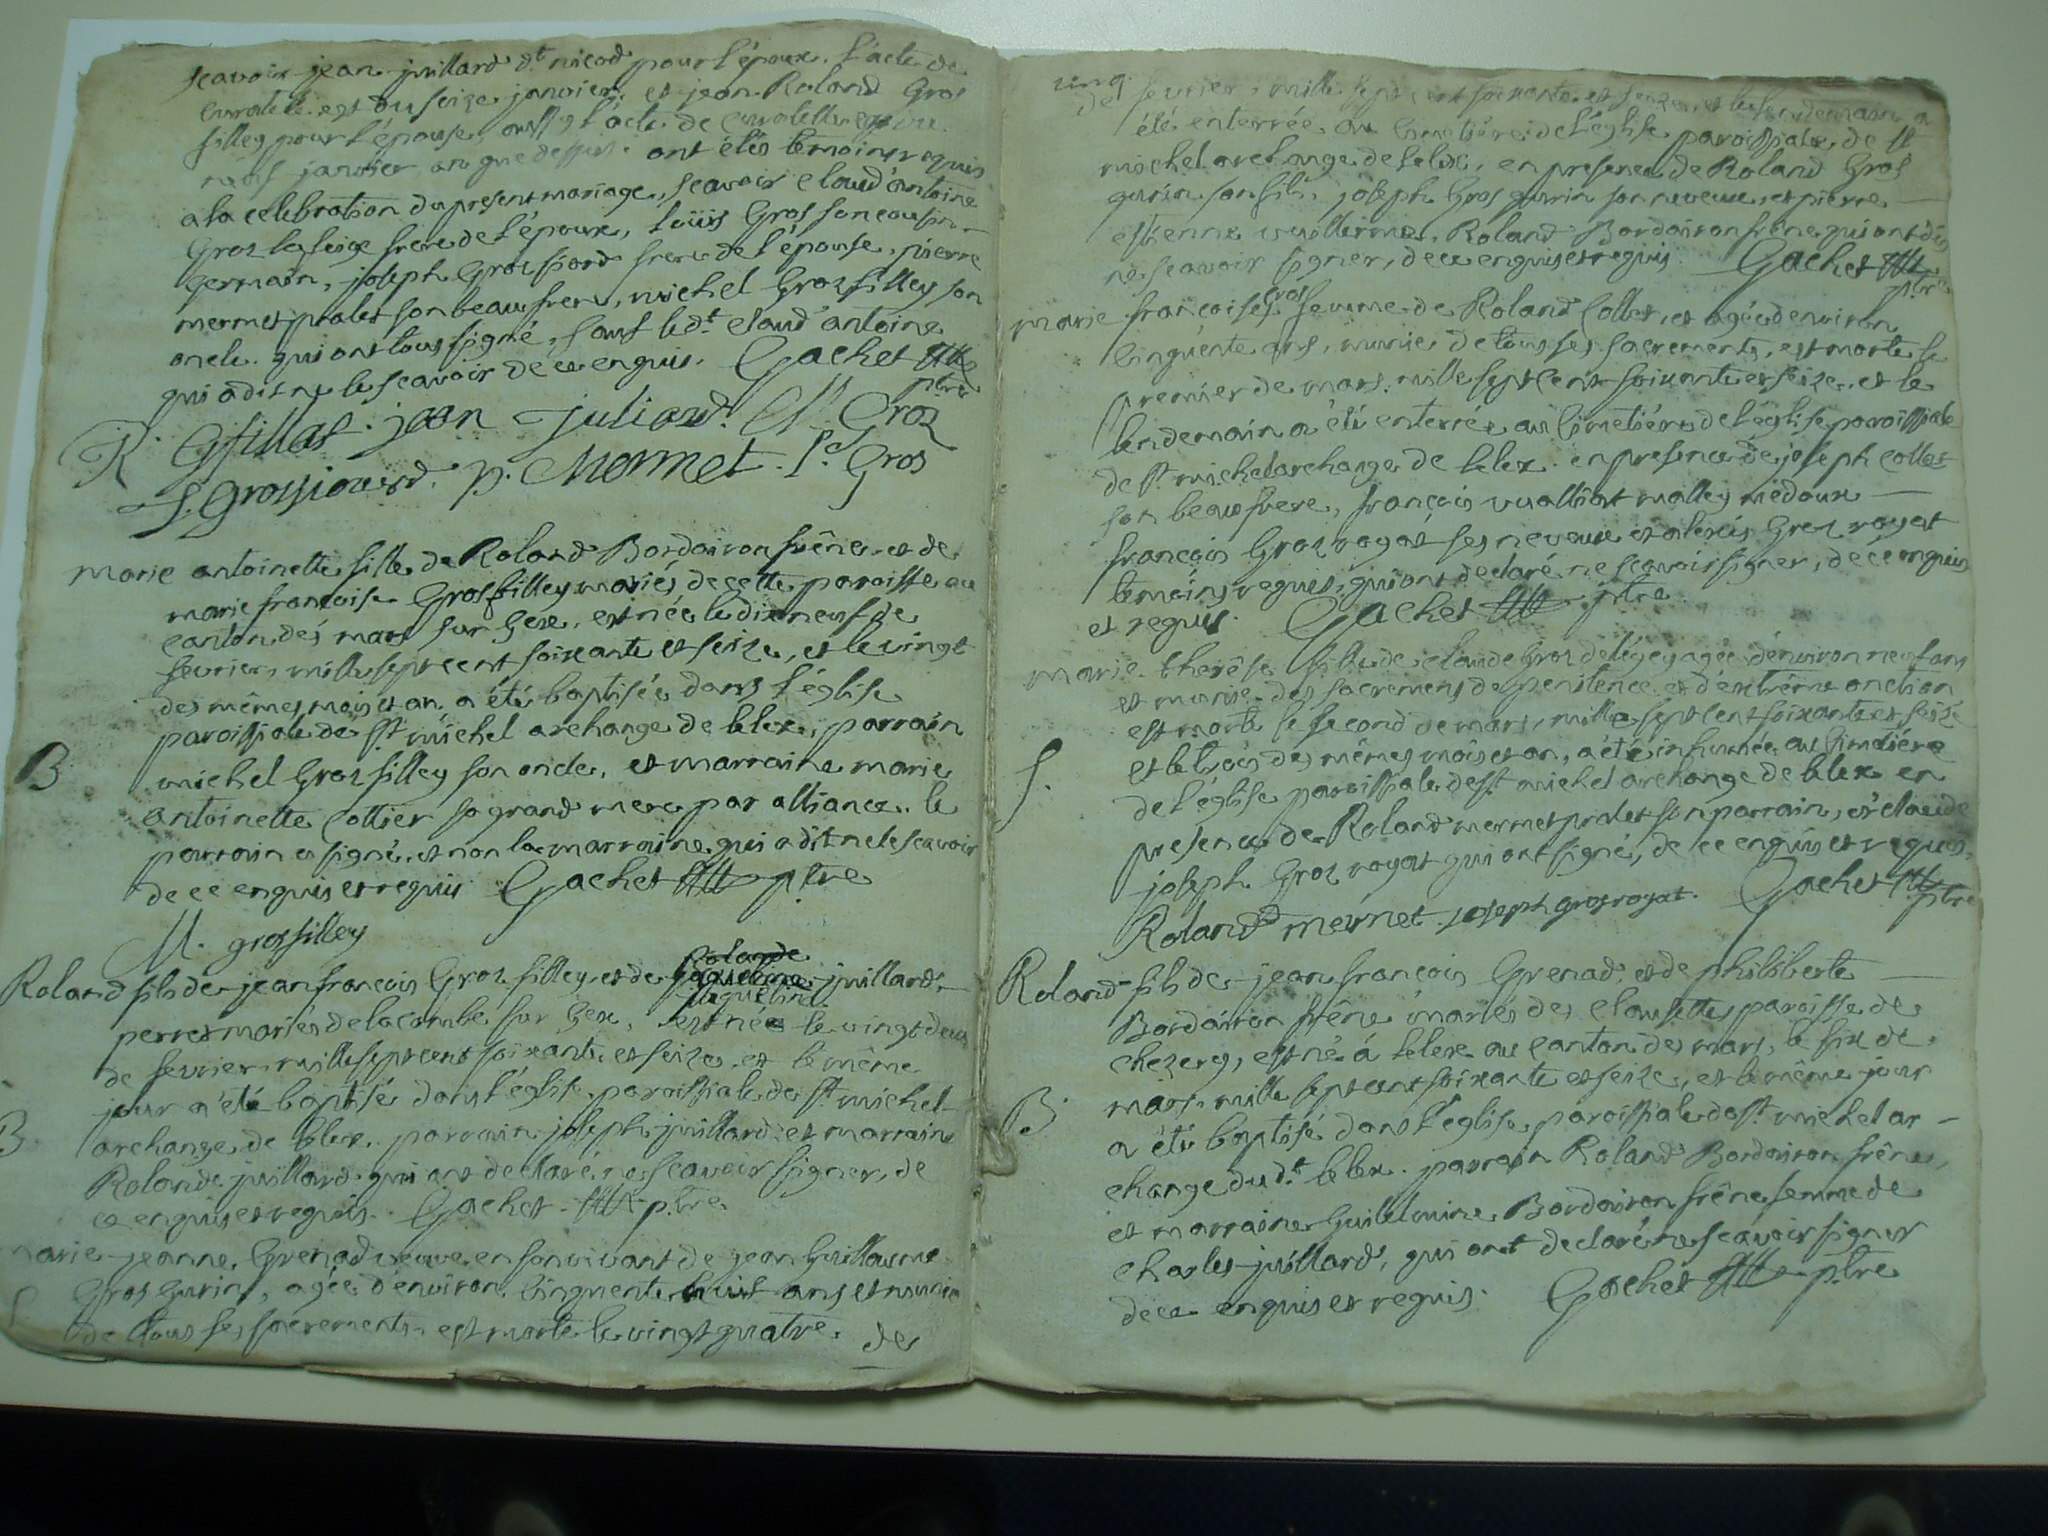 scavoir jean juillard dt nicod pour l'époux. l'acte de
curatelle est du seize janvier, et jean Roland Gros
filley pour l'épouse, aussy l'acte de curatelle
neuf janvier an que dessus. ont étés temoins requis
a la celebration du present mariage, scavoir claud'antoine
Groz frere de l'époux, Loüis Gros son cousin
germain, joseph Grospiord frere de l'épouse, pierre
mermet pralet son beaufrere, michel Groz filley son
oncle. qui ont tous signé, sauf le dt. claud'antoine
qui a dit ne le scavoir de ce enquis. Gachet ptre
R. Gfillat. jean juliard. Cl. Groz
J. Grospiourd. p. Mermet. L. Gros
marie antoinette fille de Roland Bordairon frêne et de
marie françoise Grosfilley mariés de cette paroisse au
canton des mars sur Gex, est née le dix neuf de
fevrier, mille sept cent soixante et seize, et le vingt
des mêmes mois et an, a été baptisée dans l'église
paroissiale de st michel archange de lelex, parrain
B michel Groz filley son oncle, et marraine marie
antoinette Collier sa grand mere par alliance. le
parrain a signé, et non la marraine qui a dit ne le scavoir
de ce enquis et requis Gachet ptre
M. grosfilley
Rolande
Roland fils de jean françois Groz filley et de juillard,
jaqueline
mariés de la combe sur Gex, est né le vingt deux
de fevrier mille sept cent soixante et seize, et le même
jour a été baptisé dans l'église paroissiale de st michel
B archange de lelex. parrain joseph juillard et marraine
Rolande juillard qui ont declaré ne scavoir signer, de
ce enquis et requis. Gachet ptre
marie jeanne Grenad veuve en son vivant de jean Guillaume
S Gros Gurin, agée d'environ cinquente huit ans et munie
de tous ses sacrements, est morte le vingt quatre. de
cinq
de fevrier, mille sept cent soixante et seize, et le lendemain a
été enterrée au cimetière de l'église paroissiale de st
michel archange de lelex, en presence de Roland Gros
gurin son fils, joseph Gros gurin son neveux, et pierre
estienne vuillerme, Roland Bordairon frêne qui ont dis
ne scavoir signer, de ce enquis et requis. Gachet ptre
gros
marie françoise femme de Roland Collet, et agée d'environ
cinquente ans, munie de tous ses sacrements, est morte le
premier de mars, mille sept cent soixante et seize, et le
lendemain a été enterrée au cimetiére de l'église paroissiale
de st. michel archange de lelex. en presence de joseph collet
son beaufrere, françois vualliat malley médoux
françois Groz royat ses neveux et alexis Groz royat
temoins requis, qui ont declaré ne scavoir signer, de ce enquis
et requis. Gachet ptre
marie therêse fille de claude Groz agée d'environ neuf ans
et munie des sacremens de penitence et d'extrême onction
est morte le second de mars, mille sept cent soixante et seize
S. et le trois des mêmes mois et an, a été inhumée au cimetiére
de l'église paroissiale de st michel archange de lelex en
presence de Roland mermet pralet son parrain, et claude
joseph Groz royat qui ont signé, de ce enquis et requis.
Roland mermet. joseph gros royat. Gachet ptre
Roland fils de jean françois Grenad et de philiberte
Bordairon frêne mariés des clausettes paroisse de
chezery, est né á lelex au canton des mars, le six de
mars mille sept cent soixante et seize, et le même jour
B a été baptisé dans l'église paroissiale de st michel ar-
change du dt. lelex. parrain Roland Bordairon frêne,
et marraine Guillelmine Bordairon frêne femme de
charles juillard, qui ont declaré ne scavoir signer
de ce enquis et requis. Gachet ptre